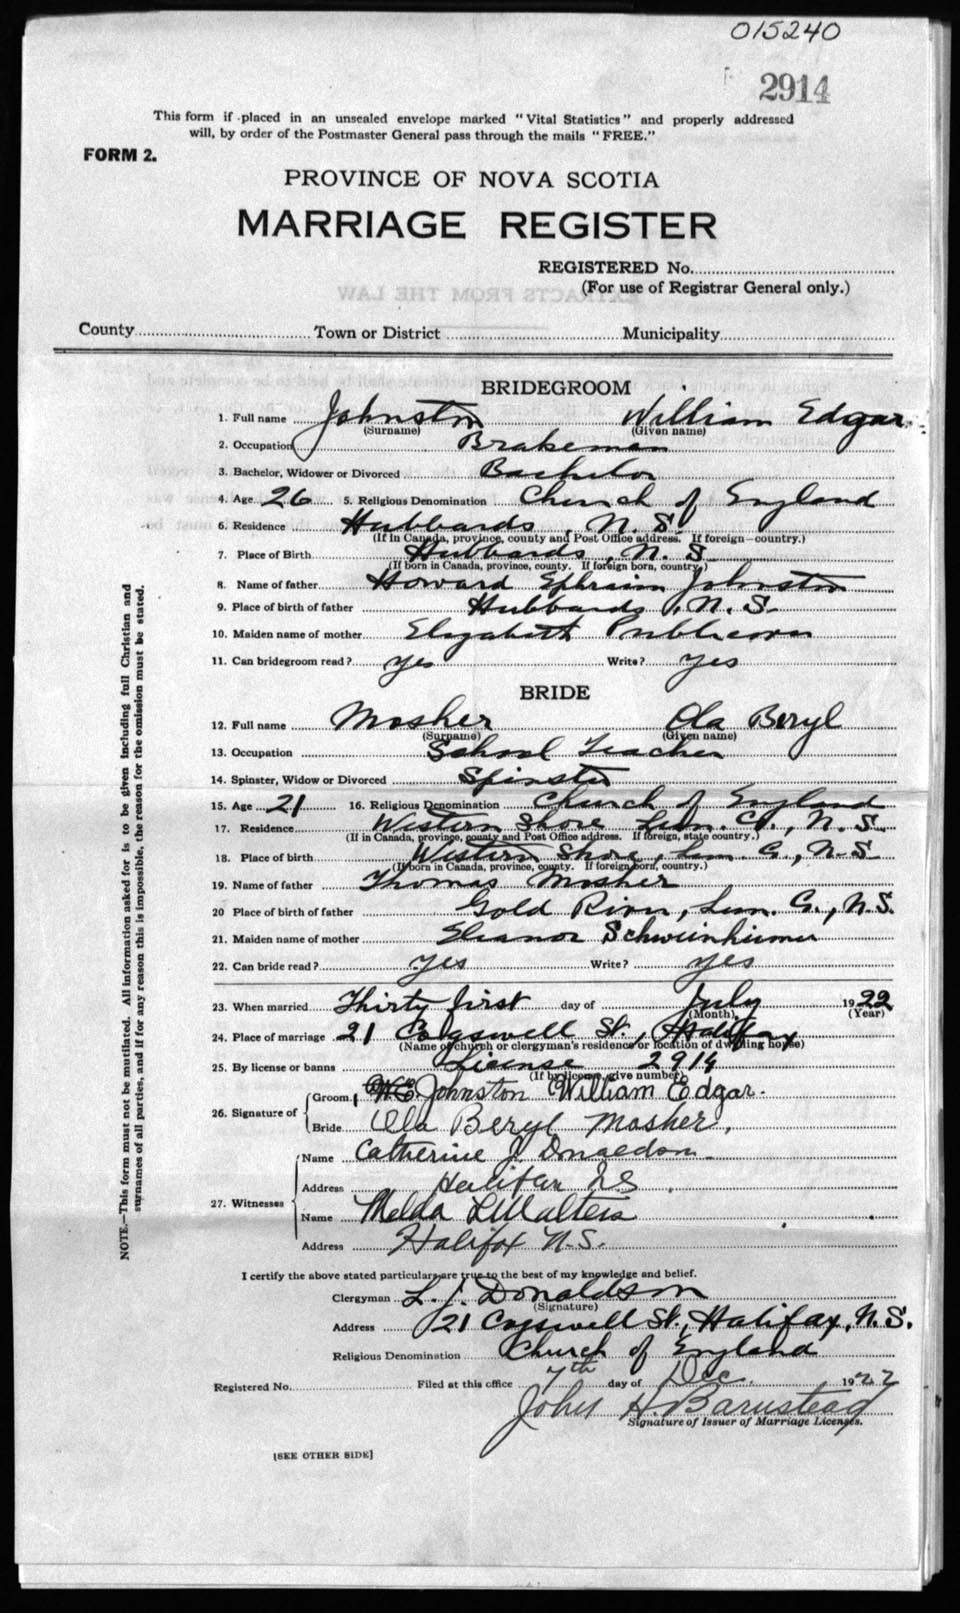 015240
2914
This form if placed in an unsealed envelope marked "Vital Statistics" and properly addressed
will, by order of the Postmaster General pass through the mails "FREE."
FORM 2.
PROVINCE OF NOVA SCOTIA
MARRIAGE REGISTER
REGISTERED No.
(For use of Registrar General only.)
County Town or District Municipality
BRIDEGROOM
1. Full name Johnston William Edgar
(Surname) (Given name)
2. Occupation Brakeman
3. Bachelor, Widower or Divorced Bachelor
4. Age 26 5. Religious Denomination Church of England
6. Residence Hubbards, N.S.
(If in Canada, province, county and Post Office address. If foreign—country.)
7. Place of Birth Hubbards, N.S.
(If born in Canada, province, county. If foreign born, country.)
8. Name of father Howard Ephraim Johnston
9. Place of birth of father Hubbards, N.S.
10. Maiden name of mother Elizabeth Publicover
11. Can bridegroom read? yes Write? yes
BRIDE
12. Full name Mosher Ola Beryl
(Surname) (Given name)
13. Occupation School Teacher
14. Spinster, Widow or Divorced Spinster
15. Age 21 16. Religious Denomination Church of England
17. Residence Western Shore Lun. Co., N.S.
(If in Canada, province, county and Post Office address. If foreign, state country.)
18. Place of birth Western Shore, Lun. Co., N.S.
(If born in Canada, province, county. If foreign born, country.)
19. Name of father Thomas Mosher
20 Place of birth of father Gold River, Lun. Co., N.S.
21. Maiden name of mother Eleanor Schweinhimer
22. Can bride read? yes Write? yes
23. When married Thirty first day of July 1922
(Month) (Year)
24. Place of marriage 21 Cogswell St., Halifax
(Name of church or clergyman's residence or location of dwelling house)
25. By license or banns License 2914
(If by license, give number)
26. Signature of
Groom Johnston William Edgar.
Bride Ola Beryl Mosher.
27. Witnesses
Name Catherine J. Donaldson
Address Halifax NS
Name Melda L Walters
Address Halifax N.S.
I certify the above stated particulars are true to the best of my knowledge and belief.
Clergyman L. J. Donaldson
(Signature)
Address 21 Cogswell St., Halifax, N.S.
Religious Denomination Church of England
Registered No. Filed at this office 7th day of Dec. 1922
John H. Barnstead
Signature of Issuer of Marriage Licenses.
[SEE OTHER SIDE]
NOTE.—This form must not be mutilated. All information asked for is to be given including full Christian and
surnames of all parties, and if for any reason this is impossible, the reason for the omission must be stated.